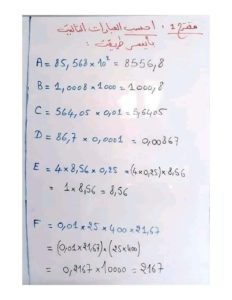 مقترح 1 : احسب العبارات التالية
بأيسر طريقة :
A = 85,568 × 10² = 8556,8
B = 1,0008 × 1000 = 1000,8
C = 564,05 × 0,01 = 5,6405
D = 86,7 × 0,0001 = 0,00867
E = 4 × 8,56 × 0,25 = (4 × 0,25) × 8,56
= 1 × 8,56 = 8,56
F = 0,01 × 25 × 400 × 21,67
= (0,01 × 21,67) × (25 × 400)
= 0,2167 × 10000 = 2167